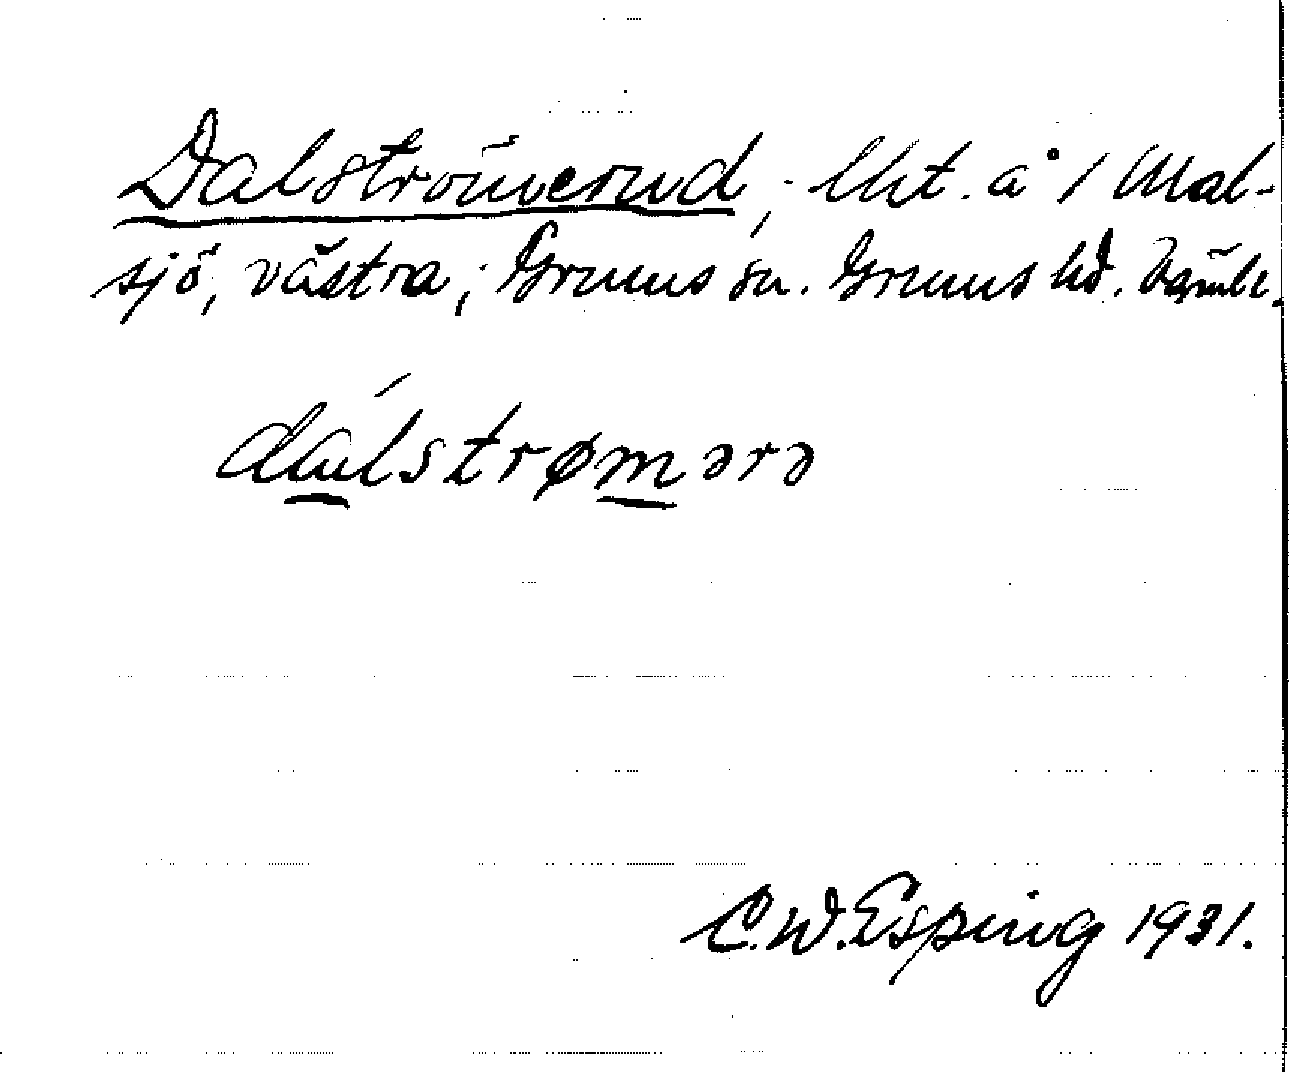 Dalströmerud, lht. å 1/1 Mal-
sjö, västra; Grums sn. Grums hd. Värml.
dálstrømərə
C.W. Esping 1931.